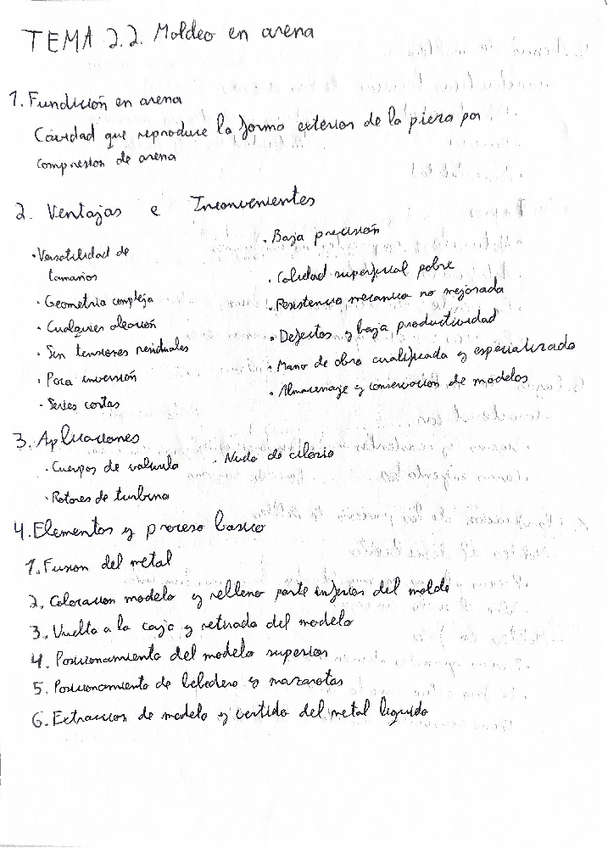 TEMA 2.2. Moldeo en arena
1. Fundición en arena
Cavidad que reproduce la forma exterior de la pieza por
compresion de arena
2. Ventajas e Inconvenientes
· Versatilidad de
tamaños
· Geometria compleja
· Cualquier aleación
· Sin tensiones residuales
· Poca inversión
· Series cortas
· Baja precisión
· Calidad superficial pobre
· Resistencia mecanica no mejorada
· Defectos y baja productividad
· Mano de obra cualificada y especializada
· Almacenaje y conservación de modelos
3. Aplicaciones
· Cuerpos de valvula
· Rotores de turbina
· Nudo de
4. Elementos y proceso basico
1. Fusion del metal
2. Colocacion modelo y relleno parte inferior del molde
3. Vuelta a la caja y retirada del modelo
4. Posicionamiento del modelo superior
5. Posicionamiento de bebedero y mazarotas
6. Extraccion de modelo y vertido del metal liquido